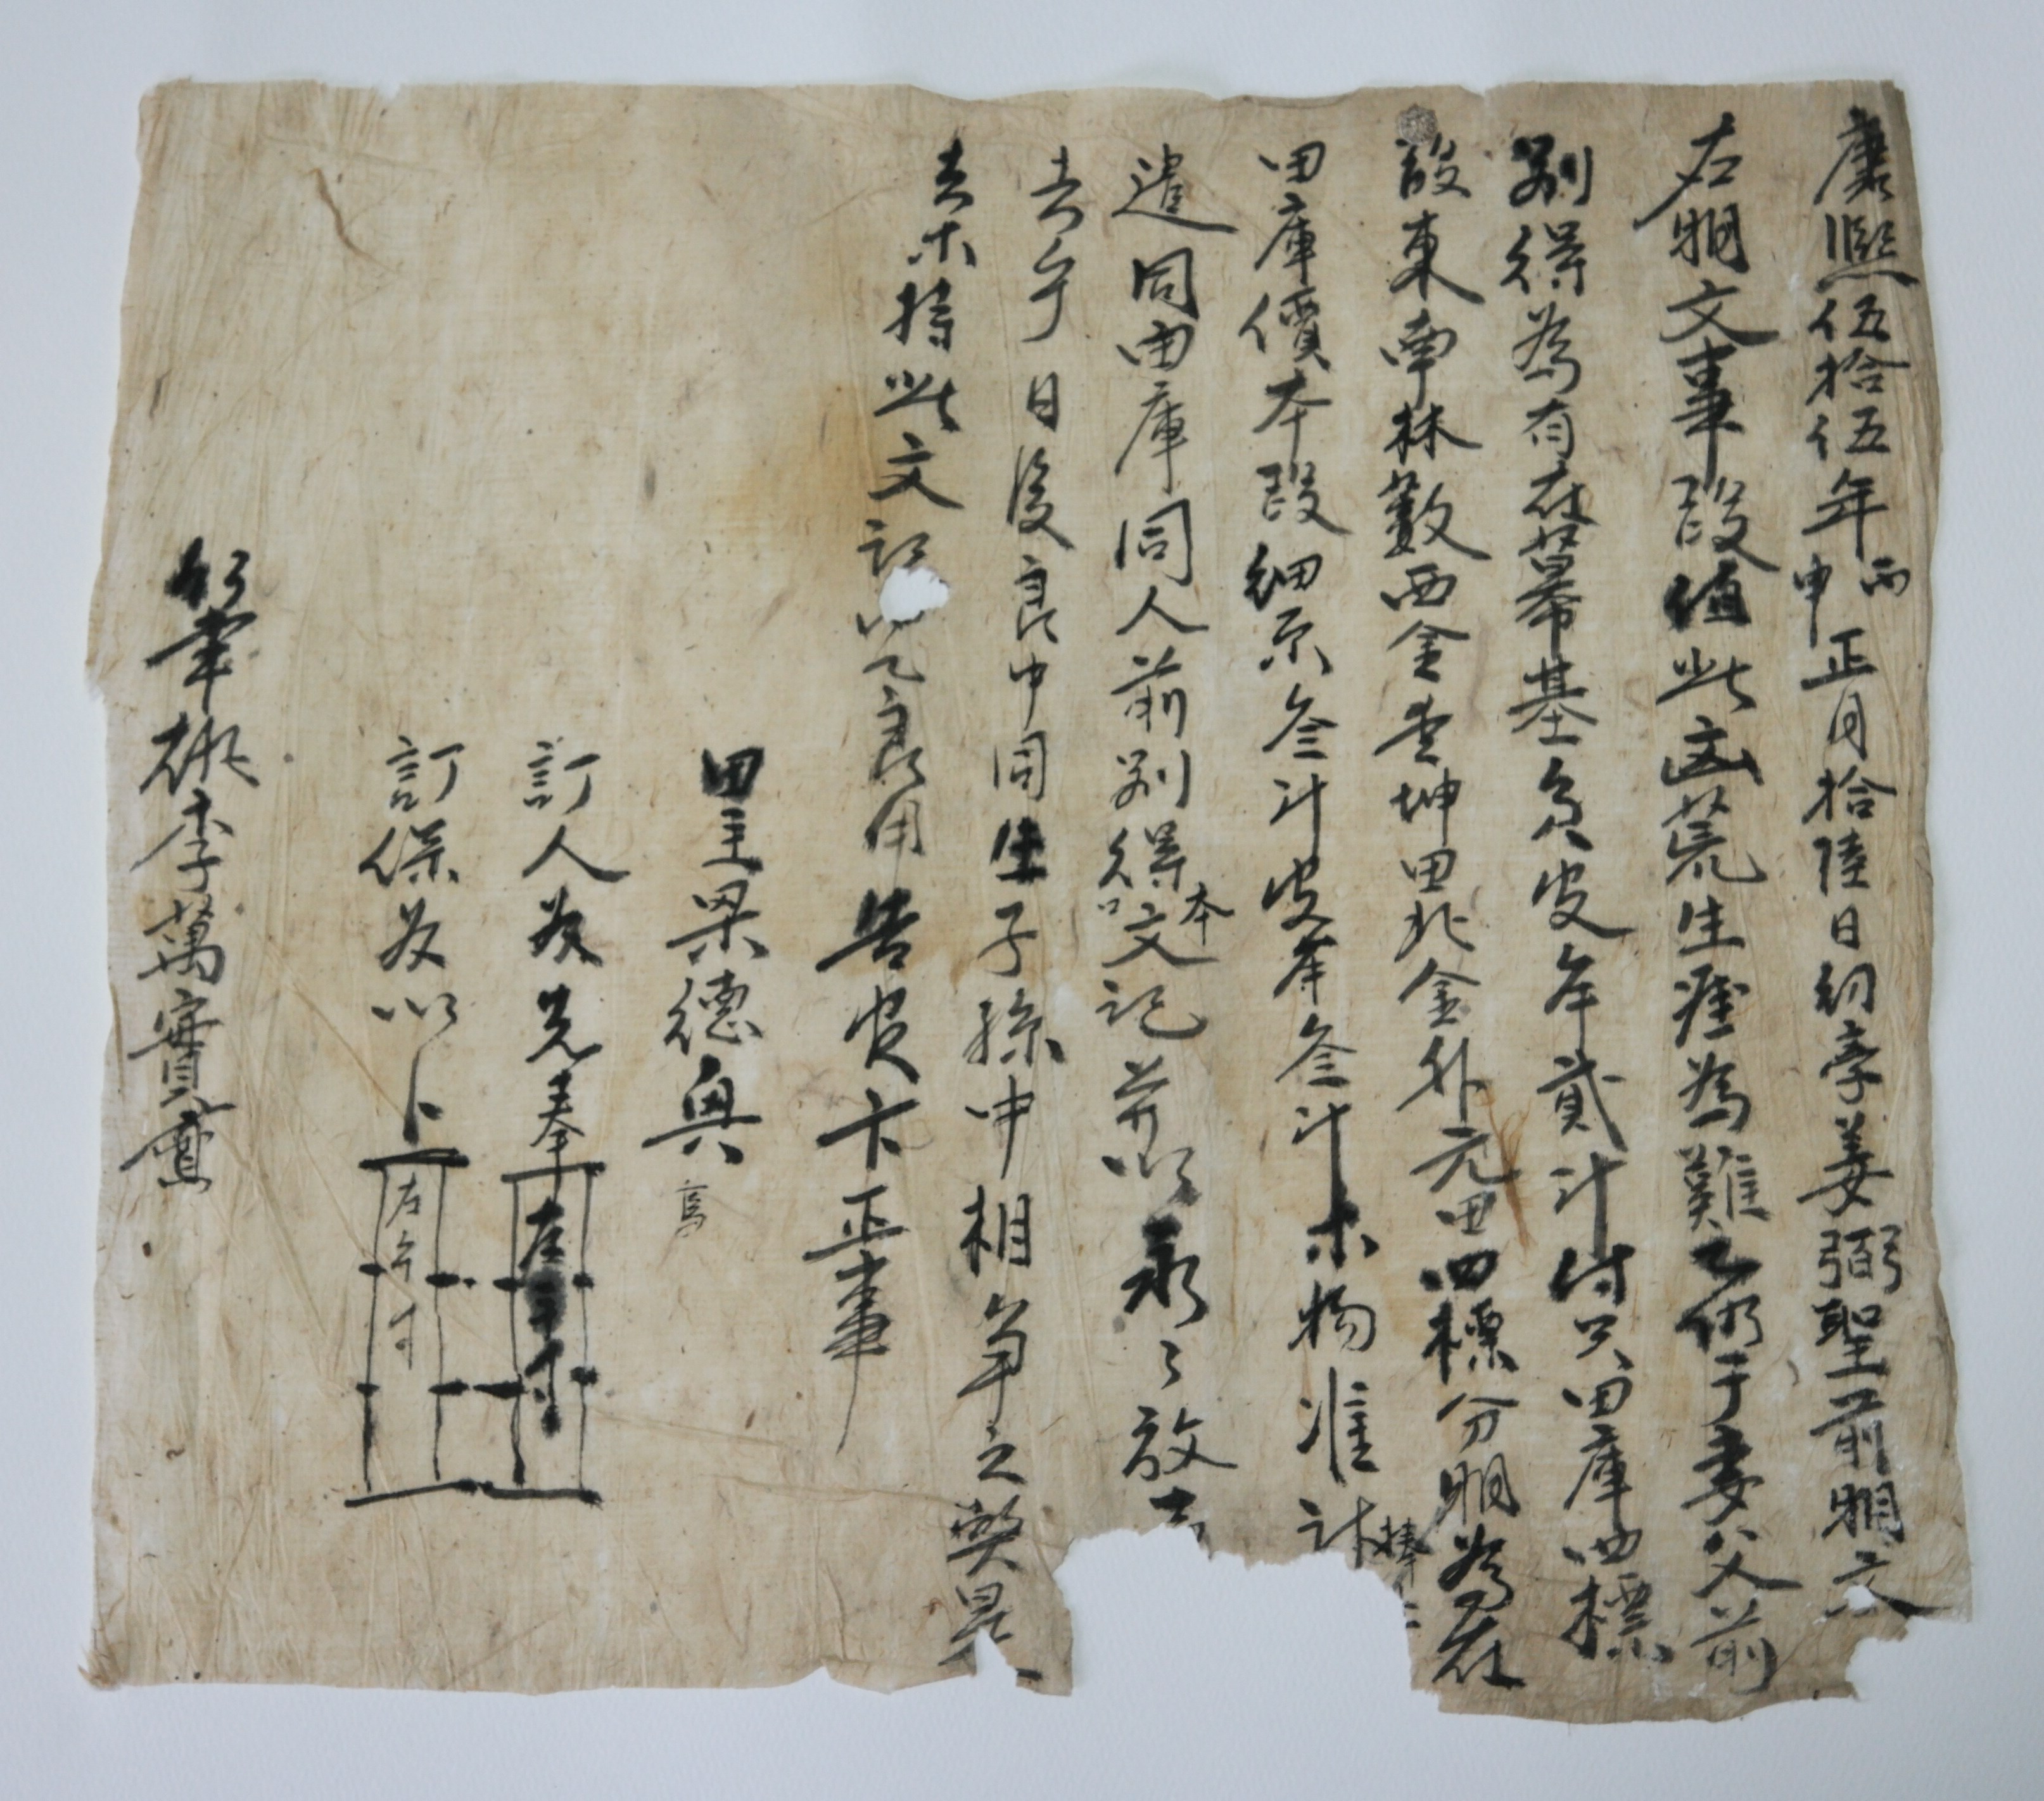 康熙伍拾伍年丙申正月拾陸日幼學姜弼聖前明文
右明文事段値此凶荒生理爲難乙仍于妻父前
別得爲有在 基員皮牟貳斗付只田庫四標
段東南林藪西金 坤田北金外元田四標分明爲在
田庫價本段細系參斗皮牟參斗 物准計捧
遣同田庫同人前別得本文記幷以永永放
去乎日後良中同生子孫中相爭之弊是
去 持此文記 良用告官卞正事
田主梁德興
訂人 先奉左寸
訂保 以卜左手寸
筆執李萬實